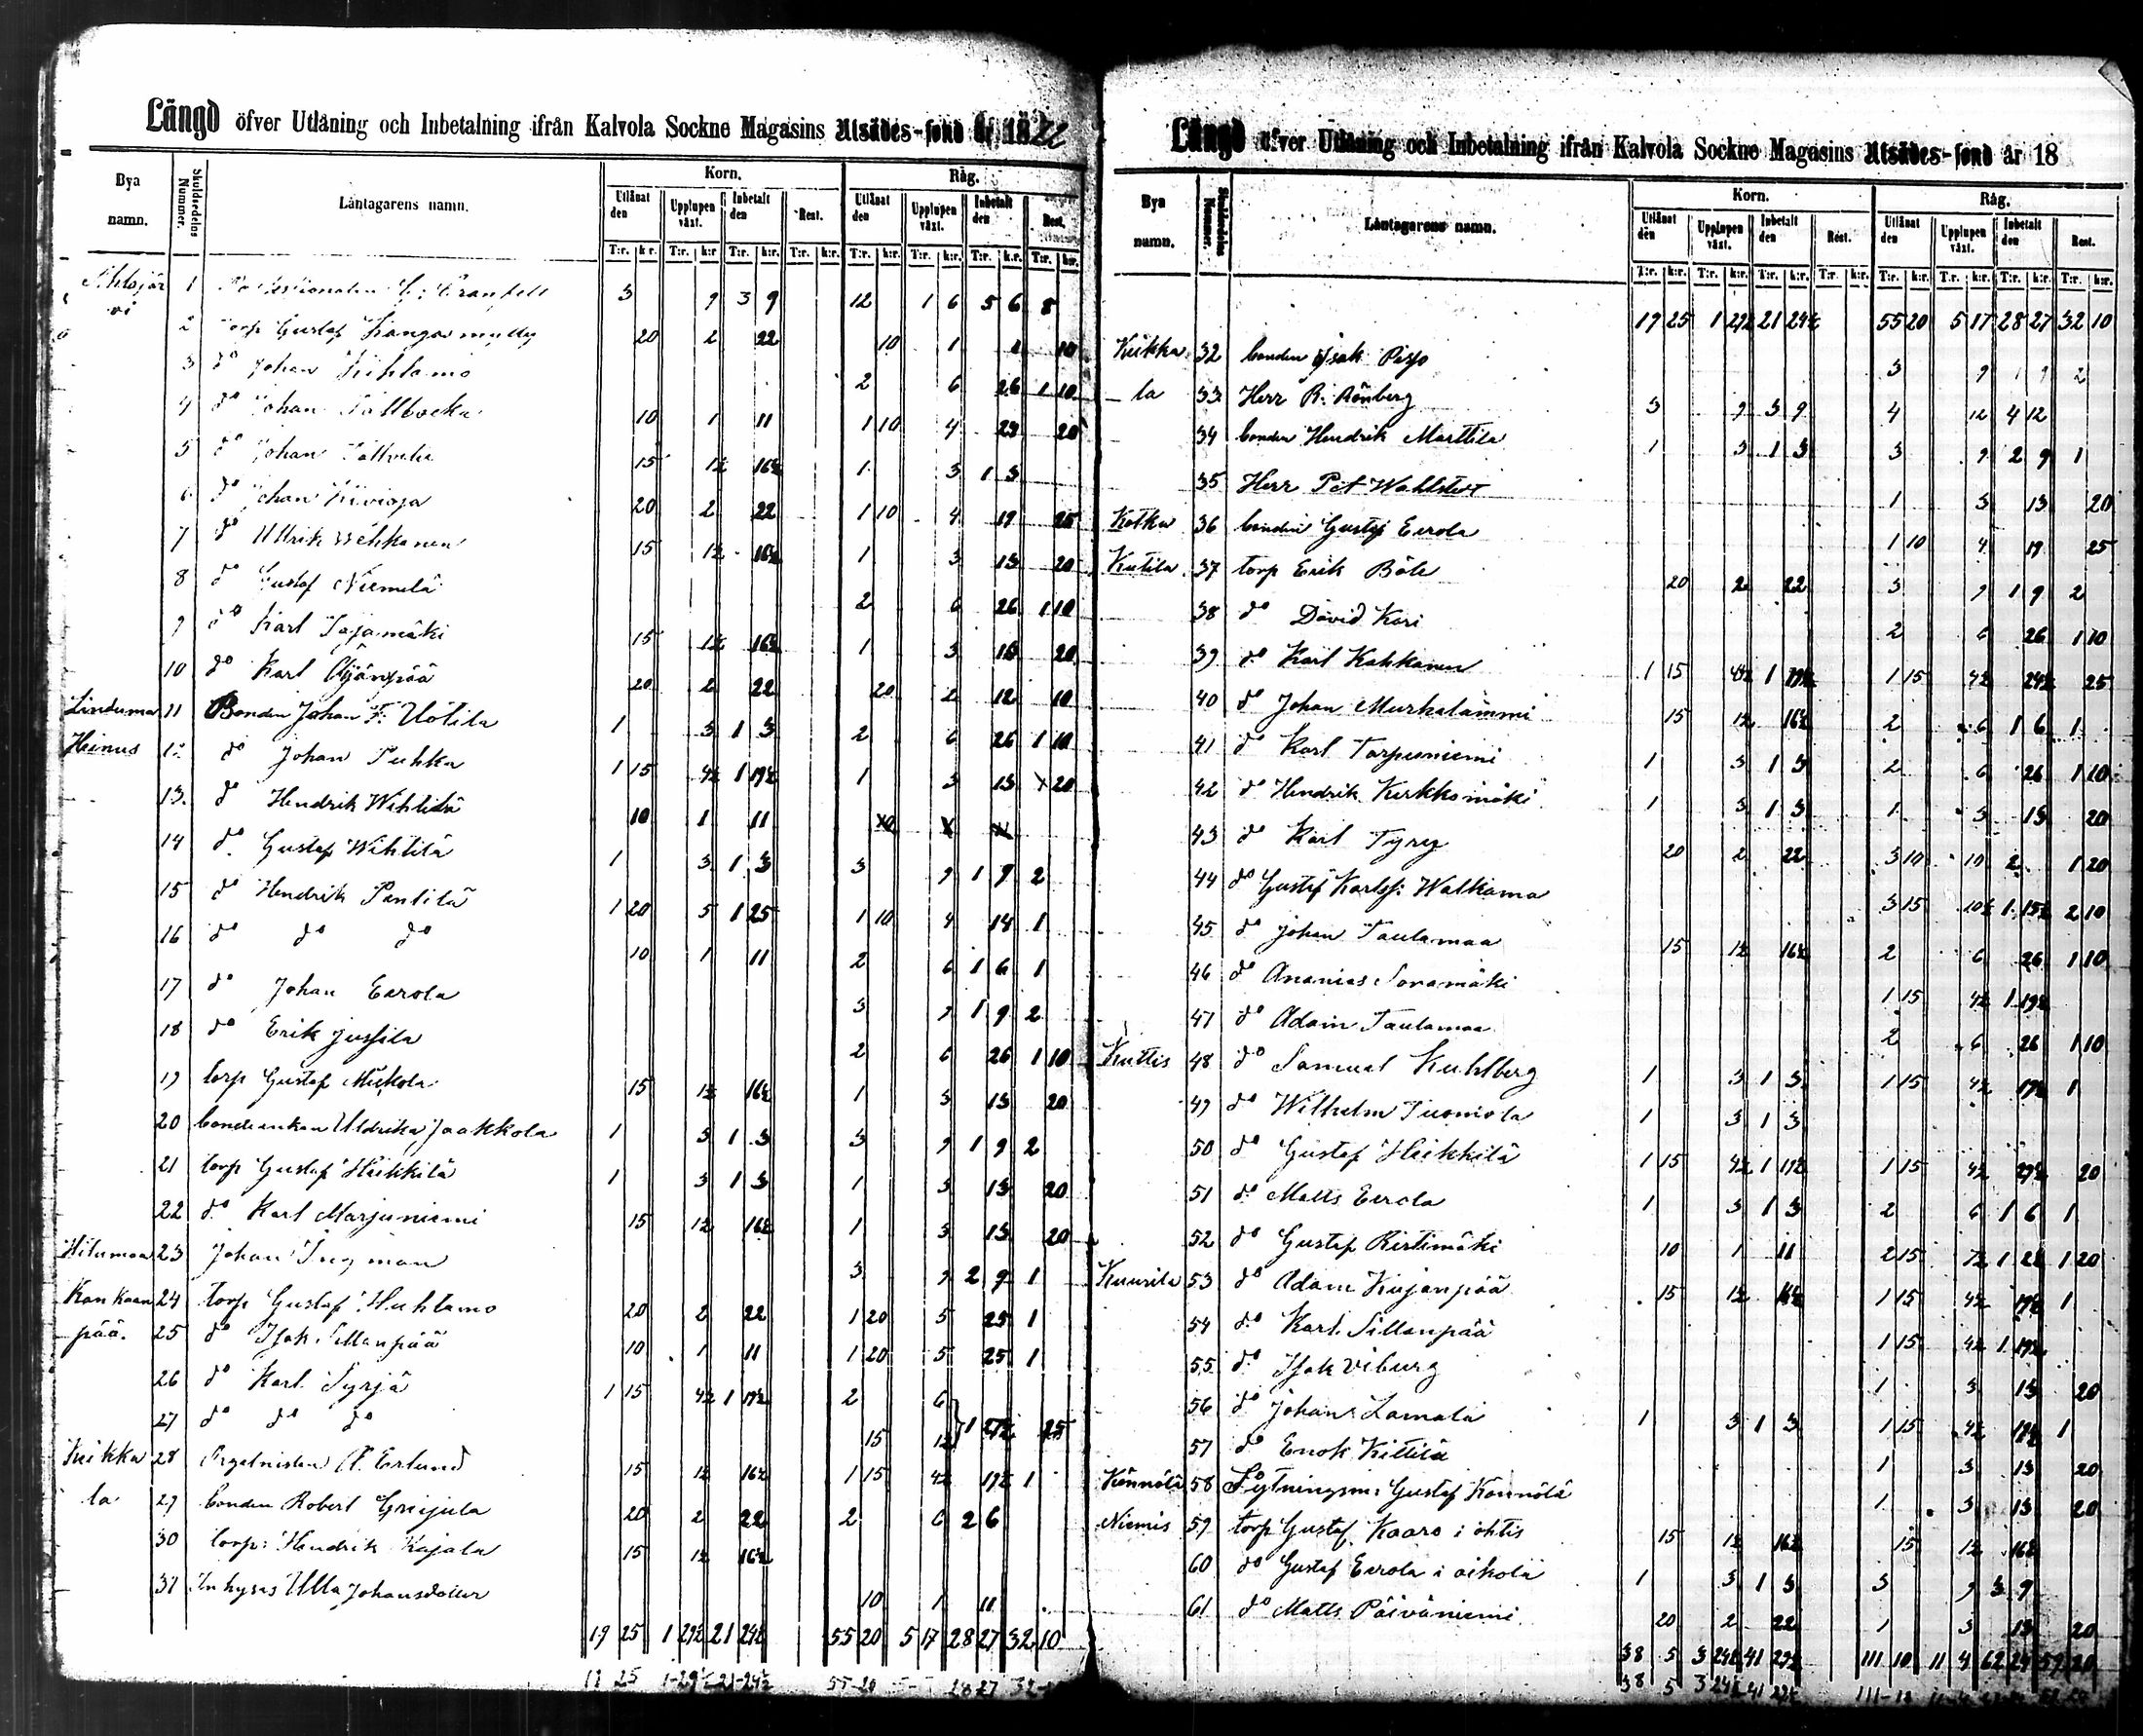 Längd öfver Utlåning och Inbetalning ifrån Kalvola Sockne Magasins Utsädes-fond år 18
Bya namn. Skuldsedelns Nummer. Låntagarens namn. Korn. Råg.
Utlånat den Upplupen växt. Inbetalt den Rest. Utlånat den Upplupen växt. Inbetalt den Rest.
T:r. k:r. T:r. k:r. T:r. k:r. T:r. k:r. T:r. k:r. T:r. k:r. T:r. k:r. T:r. k:r.
1 3 9 3 9 12 1 6 5 6 8
2 torp Gustaf Kangasmylly 20 2 22 10 1 10
3 do Johan 2 6 26 1 10
4 do Johan 10 1 11 1 10 4 20
5 do Johan 15 1½ 16½ 1 3 1 3
6 do Johan Kivioja 20 2 22 1 10 4 19 25
7 do Ullrik 15 1½ 16½ 1 3 13 20
8 do Gustaf Niemelä 2 6 26 1 10
9 do Karl Tajamäki 15 1½ 16½ 1 3 13 20
10 do Karl Äijänpää 20 2 22 20 2 12 10
11 Bonden Johan F. Uotila 1 3 1 3 2 6 26 1 10
Heinus 12 do Johan Puhka 1 15 4½ 1 19½ 1 3 13 20
13. do Hendrik Wihtilä 10 1 11
14 do Gustaf Wihtilä 1 3 1 3 3 9 1 9 2
15 do Hendrik Pantilä 1 20 5 1 25 1 10 4 14 1
16 do do do 10 1 11 2 6 1 6 1
17 do Johan Eerola 3 9 1 9 2
18 do Erik Jussila 2 6 26 1 10
19 torp Gustaf Mickola 15 1½ 16½ 1 3 13 20
20 bondeenkan Uldrika Jaakkola 1 3 1 3 3 9 1 9 2
21 torp Gustaf Heikkilä 1 3 1 3 1 3 13 20
22 do Karl Marjuniemi 15 1½ 16½ 1 3 13 20
Hitumaa 23 Johan Ingman 3 9 2 9 1
Kankaan 24 torp Gustaf Huhtamo 20 2 22 1 20 5 25 1
pää. 25 do Isak Sillanpää 10 1 11 1 20 5 25 1
26 do Karl Syrjä 1 15 4½ 1 19½ 2 6
27 do do do 15 1½ 1 27½ 25
Keikka 28 A. Erlund 15 1½ 16½ 1 15 4½ 19½ 1
la 29 bonden Robert Greijula 20 2 22 2 6 2 6
30 torp: Hendrik Kajala 15 1½ 16½
31 Inhyses Ulla Johansdotter 10 1 11
19 25 1 29½ 21 24½ 55 20 5 17 28 27 32 10
25 1-29½ 21-24½ 55-20 28 27
Längd öfver Utlåning och Inbetalning ifrån Kalvola Sockne Magasins Utsädes-fond år 18
Bya namn. Skuldsedelns Nummer. Låntagarens namn. Korn. Råg.
Utlånat den Upplupen växt. Inbetalt den Rest. Utlånat den Upplupen växt. Inbetalt den Rest.
T:r. k:r. T:r. k:r. T:r. k:r. T:r. k:r. T:r. k:r. T:r. k:r. T:r. k:r. T:r. k:r.
19 25 1 29½ 21 24½ 55 20 5 17 28 27 32 10
Keikka 32 bonden Isak 3 9 1 9 2
la 33 Herr R. Rönberg 3 9 3 9 4 12 4 12
34 bonden Hendrik Marttila 1 3 1 3 3 9 2 9 1
35 Herr Pet Wahlstedt 1 3 13 20
Kotka 36 bonden Gustaf Eerola 1 10 4 19 25
Kutila 37 torp Erik Böle 20 2 22 3 9 1 9 2
38 do David Kari 2 6 26 1 10
39 do Karl Kahkanen 1 15 4½ 1 19½ 1 15 4½ 24½ 25
40 do Johan Murkalammi 15 1½ 16½ 2 6 1 6 1
41 do Karl Tarpuniemi 1 3 1 3 2 6 26 1 10
42 do Hendrik Kirkkomäki 1 3 1 3 1 3 13 20
43 do Karl Tyry 20 2 22 3 10 10 2 1 20
44 do Gustaf Karlss: Walkama 3 15 10½ 1 15½ 2 10
45 do Johan Taulamaa 15 1½ 16½ 2 6 26 1 10
46 do Ananias Soramäki 1 15 4½ 1 19½
47 do Adam Taulamaa 2 6 26 1 10
Kuttis 48 do Samuel Kuhlberg 1 3 1 3 1 15 4½ 19½ 1
49 do Wilhelm Tuomola 1 3 1 3
50 do Gustaf Heikkilä 1 15 4½ 1 19½ 1 15 4½ 29½ 20
51 do Matts Eerola 1 3 1 3 2 6 1 6 1
52 do Gustaf Ristimäki 10 1 11 2 15 7½ 1 1 20
Kuurila 53 do Adam Kujanpää 15 1½ 16½ 1 15 4½ 19½ 1
54 do Karl Sillanpää 1 15 4½ 1 19½
55 do Isak Viburg 1 3 13 20
56 do Johan Lamala 1 3 1 3 1 15 4½ 19½ 1
57 do Enok Kittilä 1 3 13 20
Könnölä 58 Sytningsm: Gustaf Könnölä 1 3 13 20
Niemis 59 torp Gustaf Kaaro i ohtis 15 1½ 16½ 15 1½ 16½
60 do Gustaf Eerola i oikola 1 3 1 3 3 9 3 9
61 do Matts Päiväniemi 20 2 22 1 3 13 20
38 5 3 24½ 41 29½ 111 10 11 4 62 24 59 20
38 5 3 24½ 41 29½